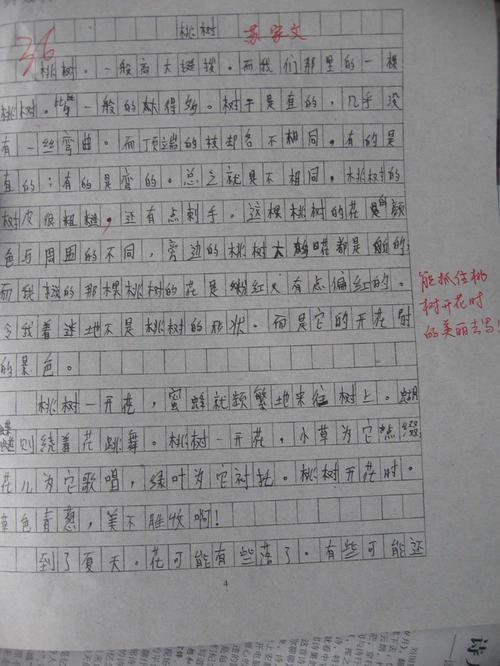 桃树
苏家文
36
桃树,一般高大挺拔。而我们那里的一棵
桃树,比一般的矮得多。树干是直的,几乎没
有一丝弯曲。而顶端的枝却各不相同。有的是
直的;有的是弯的。总之就是不相同。桃树的
树皮很粗糙,还有点刺手。这棵桃树的花的颜
色与周围的不同,旁边的桃树大花都是的
而我的那棵桃树的花是粉红又有点偏红的。
令我着迷地不是桃树的形状。而是它的开花时
的景色。
能抓住桃
树开花时
的美丽去写!
桃树一开花,蜜蜂就频繁地来往树上。蝴
蝶则绕着花跳舞。桃树一开花,小草为它点缀
花儿为它歌唱,绿叶为它衬托。桃树开花时。
草色青葱,美不胜收啊!
到了夏天。花可能有些落了。有些可能还
4